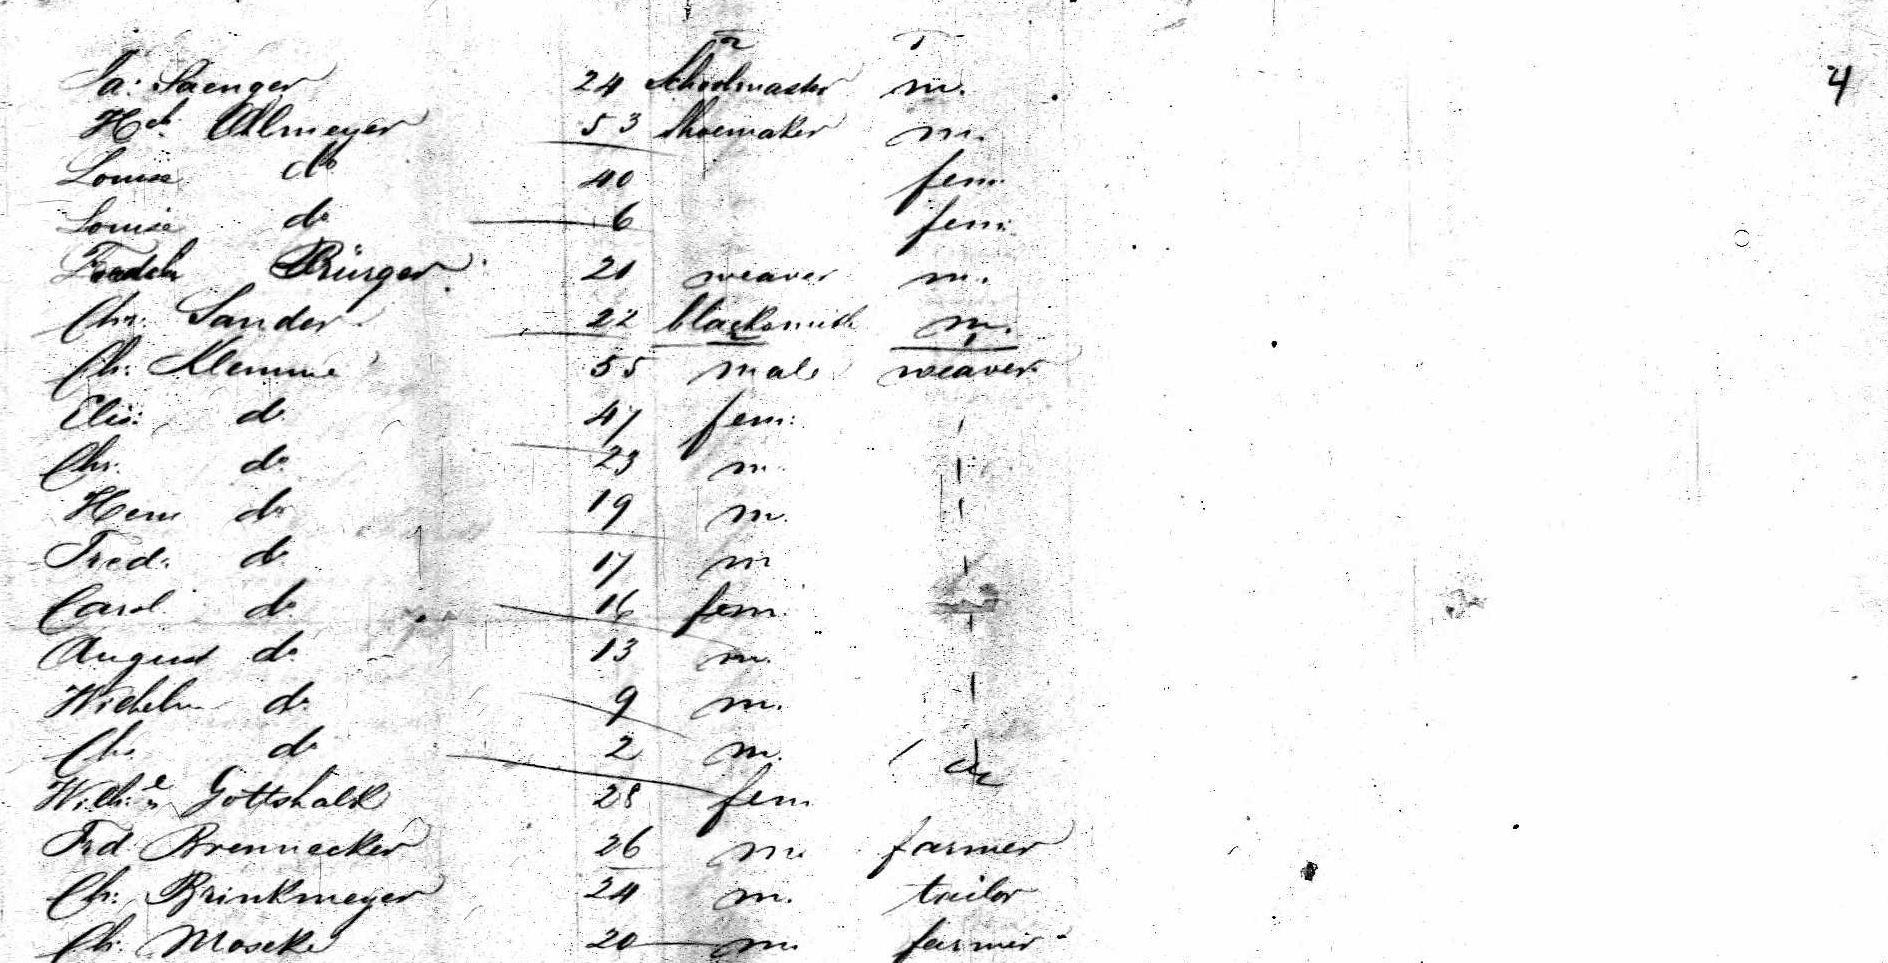 2 1
Ja: Saenger 24 Schoolmaster m. 4
Hch. Ollmeyer 53 Shoemaker m.
Louise do 40 fem.
Louise do 6 fem.
Fredch Bürger 21 weaver m.
Chr. Sander 22 blacksmith m.
Ch: Klemme 55 male weaver
Elis: do 47 fem:
Chr. do 23 m.
Henr do 19 m.
Fred. do 17 m
Carol do 16 fem
August do 13 m.
Wilhelm do 9 m.
Chr. do 2 m.
Gottshalk 28 fem
Frd Brennecker 26 m. farmer
Ch: Brinkmeyer 24 m. tailor
Ch. Moseke 20 m. farmer